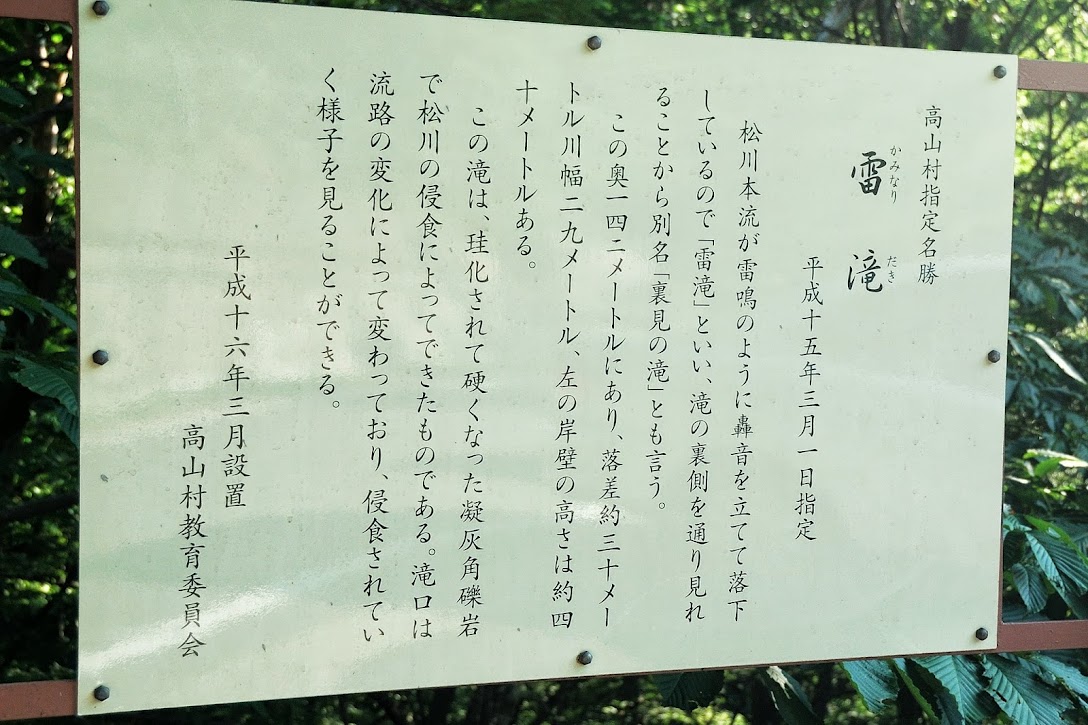 高山村指定名勝
雷滝
かみなり だき
平成十五年三月一日指定
松川本流が雷鳴のように轟音を立てて落下
しているので「雷滝」といい、滝の裏側を通り見れ
ることから別名「裏見の滝」とも言う。
この奥一四二メートルにあり、落差約三十メー
トル川幅二九メートル、左の岸壁の高さは約四
十メートルある。
この滝は、珪化されて硬くなった凝灰角礫岩
で松川の侵食によってできたものである。滝口は
流路の変化によって変わっており、侵食されてい
く様子を見ることができる。
平成十六年三月設置
高山村教育委員会